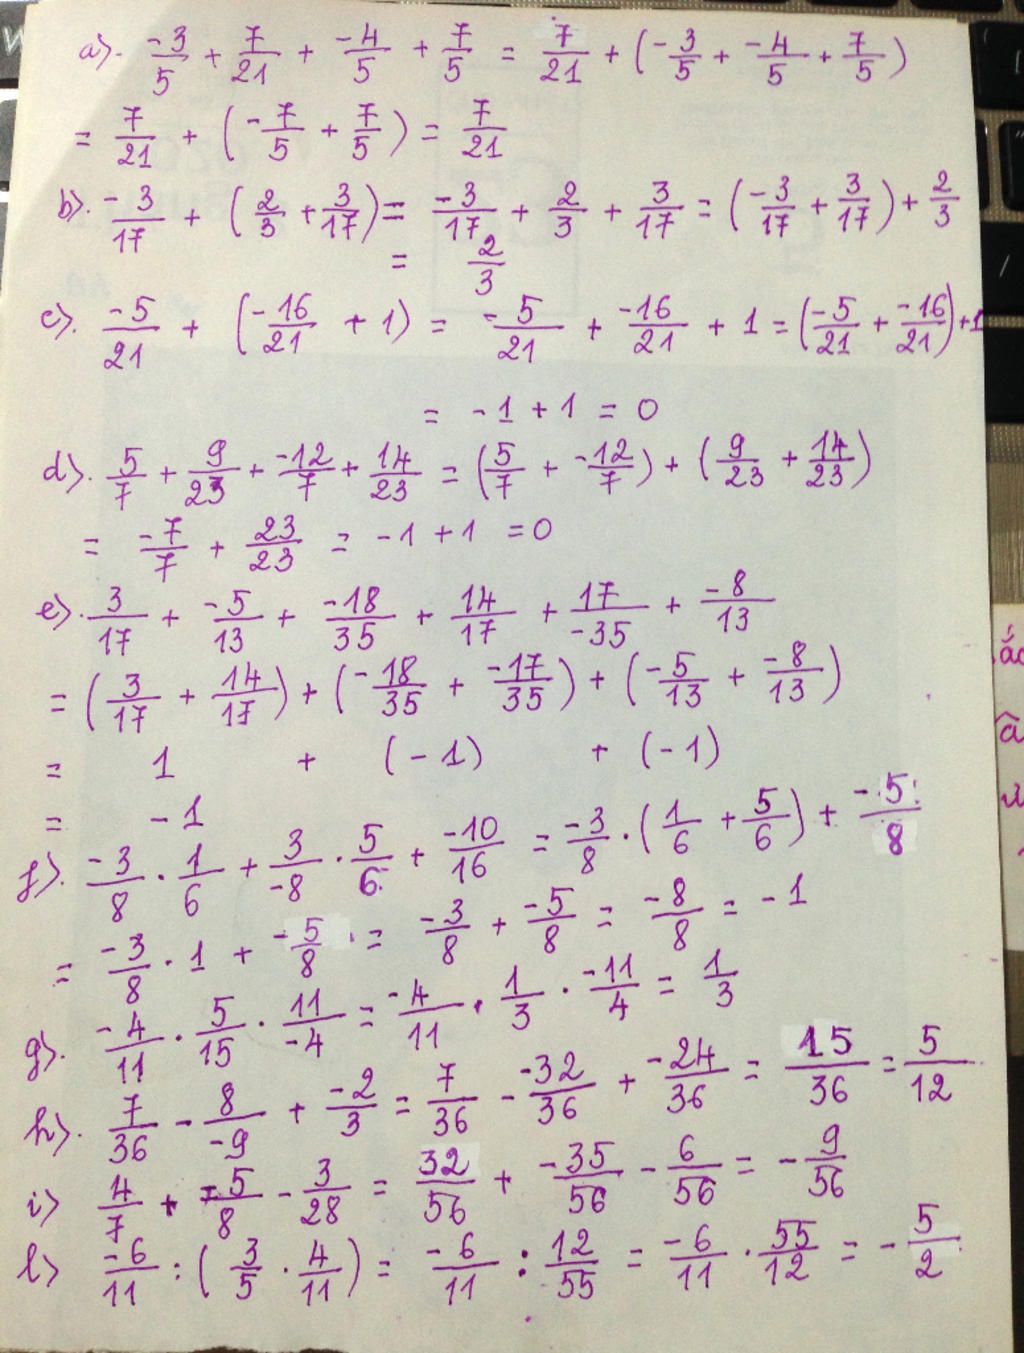 a). -3/5 + 7/21 + -4/5 + 7/5 = 7/21 + (-3/5 + -4/5 + 7/5)
= 7/21 + (-7/5 + 7/5) = 7/21
b). -3/17 + (2/3 + 3/17) = -3/17 + 2/3 + 3/17 = (-3/17 + 3/17) + 2/3
= 2/3
c). -5/21 + (-16/21 + 1) = -5/21 + -16/21 + 1 = (-5/21 + -16/21) + 1
= -1 + 1 = 0
d). 5/7 + 9/23 + -12/7 + 14/23 = (5/7 + -12/7) + (9/23 + 14/23)
= -7/7 + 23/23 = -1 + 1 = 0
e). 3/17 + -5/13 + -18/35 + 14/17 + 17/-35 + -8/13
= (3/17 + 14/17) + (-18/35 + -17/35) + (-5/13 + -8/13)
= 1 + (-1) + (-1)
= -1
f). -3/8 . 1/6 + 3/-8 . 5/6 + -10/16 = -3/8 . (1/6 + 5/6) + -5/8
= -3/8 . 1 + -5/8 = -3/8 + -5/8 = -8/8 = -1
g). -4/11 . 5/15 . 11/-4 = -4/11 . 1/3 . -11/4 = 1/3
h). 7/36 - 8/-9 + -2/3 = 7/36 - -32/36 + -24/36 = 15/36 = 5/12
i) 4/7 + -5/8 - 3/28 = 32/56 + -35/56 - 6/56 = -9/56
l) -6/11 : (3/5 . 4/11) = -6/11 : 12/55 = -6/11 . 55/12 = -5/2